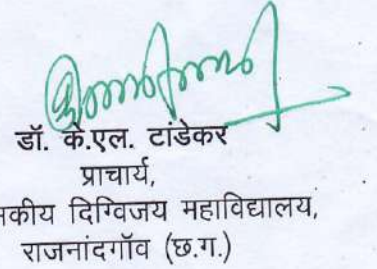 डॉ. के.एल. टांडेकर
प्राचार्य,
सकीय दिग्विजय महाविद्यालय,
राजनांदगॉव (छ.ग.)